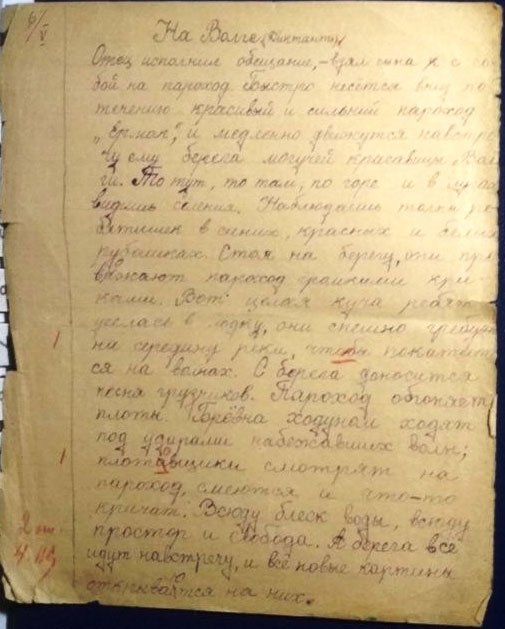 6/V
На Волге (диктант)
Отец исполнил обещание, – взял сына к с со-
бой на пароход. Быстро несётся вниз по
течению красивый и сильный пароход
„Ермак“, и медленно движутся навстре-
чу ему берега могучей красавицы Вол-
ги. То тут, то там, по горе и в лугах
видишь селения. Наблюдаешь толпы ре-
бятишек в синих, красных и белых
рубашках. Стоя на берегу, они про
важают пароход громкими кри-
ками. Вот целая куча ребят
уселась в лодку, они спешно гребут
на середину реки, чтобы покатать
ся на волнах. С берега доносится
песня грузчиков. Пароход обгоняет
плоты. Брёвна ходуном ходят
под ударами набежавших волн;
плотавщики смотрят на
пароход, смеются и что-то
кричат. Всюду блеск воды, всюду
простор и свобода. А берега всё
идут навстречу, и всё новые картины
открываются на них.